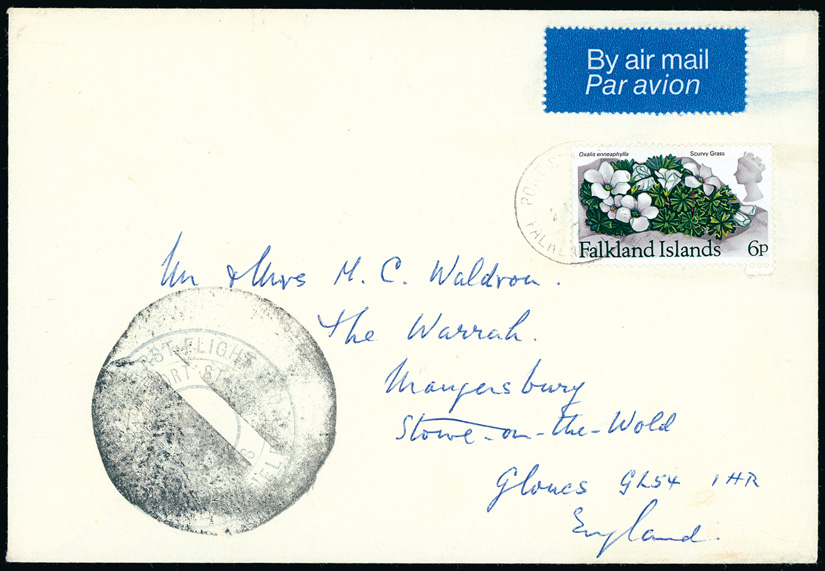 By air mail
Par avion
Oxalis enneaphylla Scurvy Grass
Falkland Islands 6p
PORT
FALKL
Mr & Mrs M. C. Waldron.
The Warrah.
Maugersbury
Stowe-on-the-Wold
Gloucs GL54 1HR
England.
FLIGHT
ST